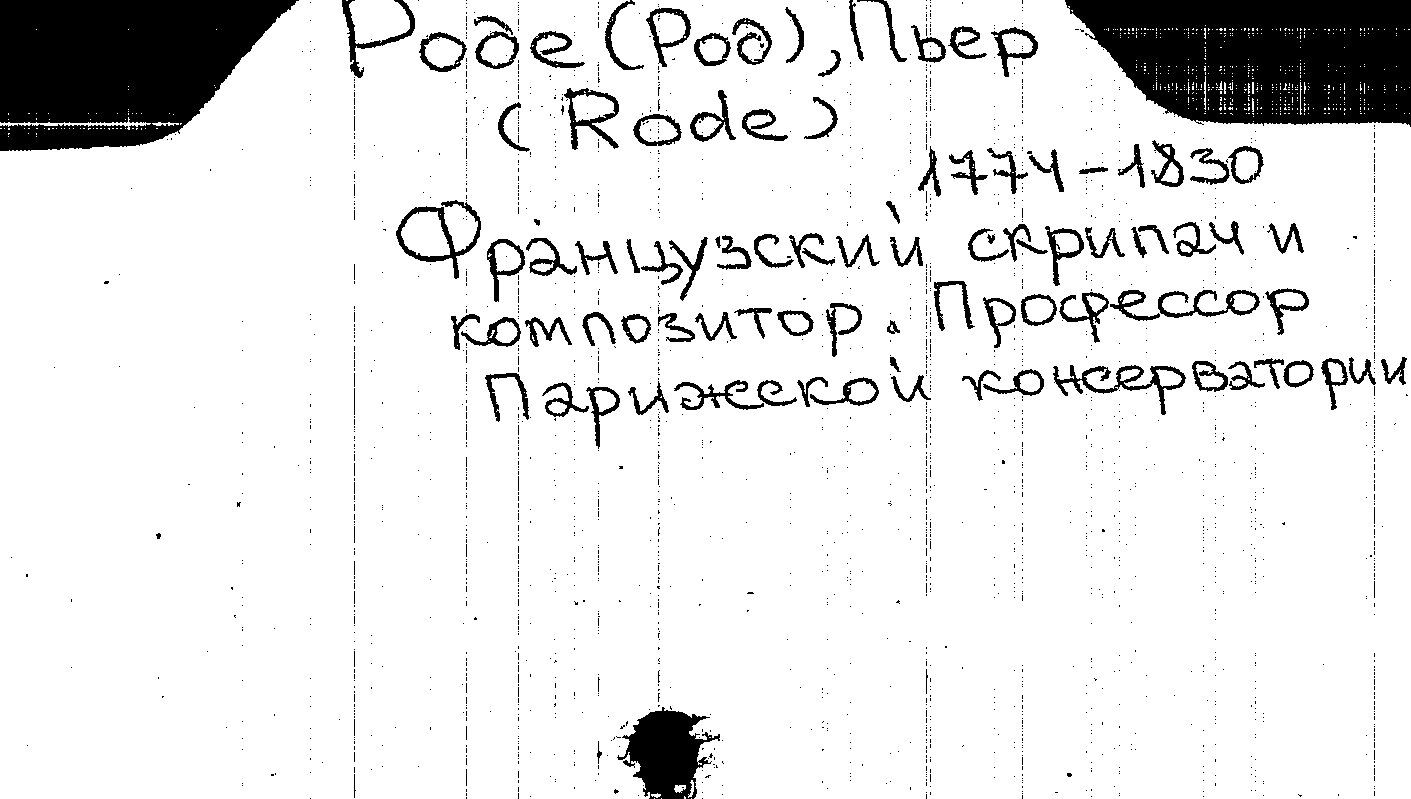 Роде (Род), Пьер
(Rode)
1774-1830
Французский скрипач и
композитор. Профессор
Парижской консерватории